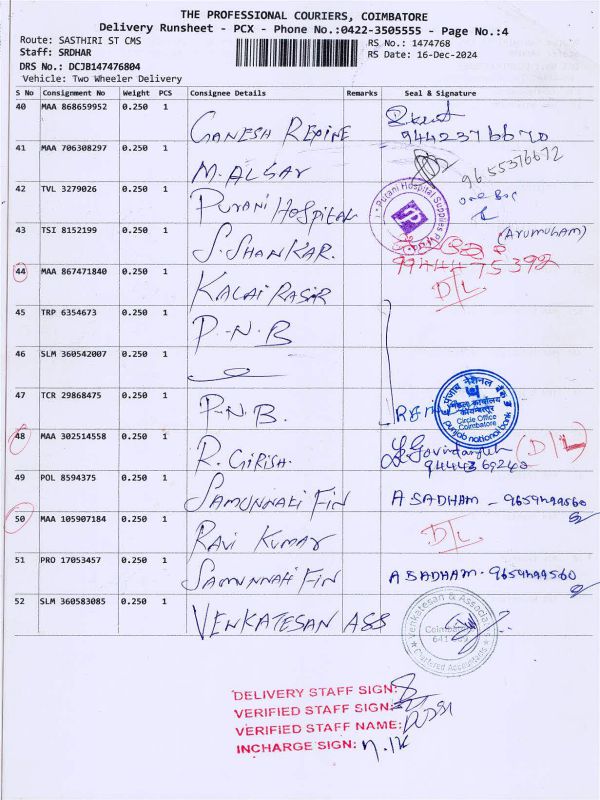 THE PROFESSIONAL COURIERS, COIMBATORE
Delivery Runsheet - PCX - Phone No.:0422-3505555 - Page No.:4
Route: SASTHIRI ST CMS
RS No.: 1474768
Staff: SRDHAR
RS Date: 16-Dec-2024
DRS No.: DCJB147476804
Vehicle: Two Wheeler Delivery
S No Consignment No Weight PCS Consignee Details Remarks Seal & Signature
40 MAA 868659952 0.250 1 GANESH REPINE 9442376670
41 MAA 706308297 0.250 1 M. ALSAY 9655376672
42 TVL 3279026 0.250 1 PURANI HOSPITAL Purani Hospital Supplies
43 TSI 8152199 0.250 1 S. SHANKAR. (ARUMUGAM)
9944475392
44 MAA 867471840 0.250 1 KALAI RASIR D/L
45 TRP 6354673 0.250 1 P-N-B
46 SLM 360542007 0.250 1
47 TCR 29868475 0.250 1 P.N.B. पंजाब नैशनल बैंक
मंडल कार्यालय
कोयम्बत्तूर
Circle Office
Coimbatore
punjab national bank
48 MAA 302514558 0.250 1 R. GIRISH. (D/L)
9444369240
49 POL 8594375 0.250 1 SAMUNNATI FIN A SADHAM - 9659499560
50 MAA 105907184 0.250 1 RAVI KUMAR D/L
51 PRO 17053457 0.250 1 SAMUNNATI FIN A SADHAM - 9659499560
52 SLM 360583085 0.250 1 VENKATESAN ASS Venkatesan & Associates
Chartered Accountants
DELIVERY STAFF SIGN:
VERIFIED STAFF SIGN:
VERIFIED STAFF NAME:
INCHARGE SIGN: